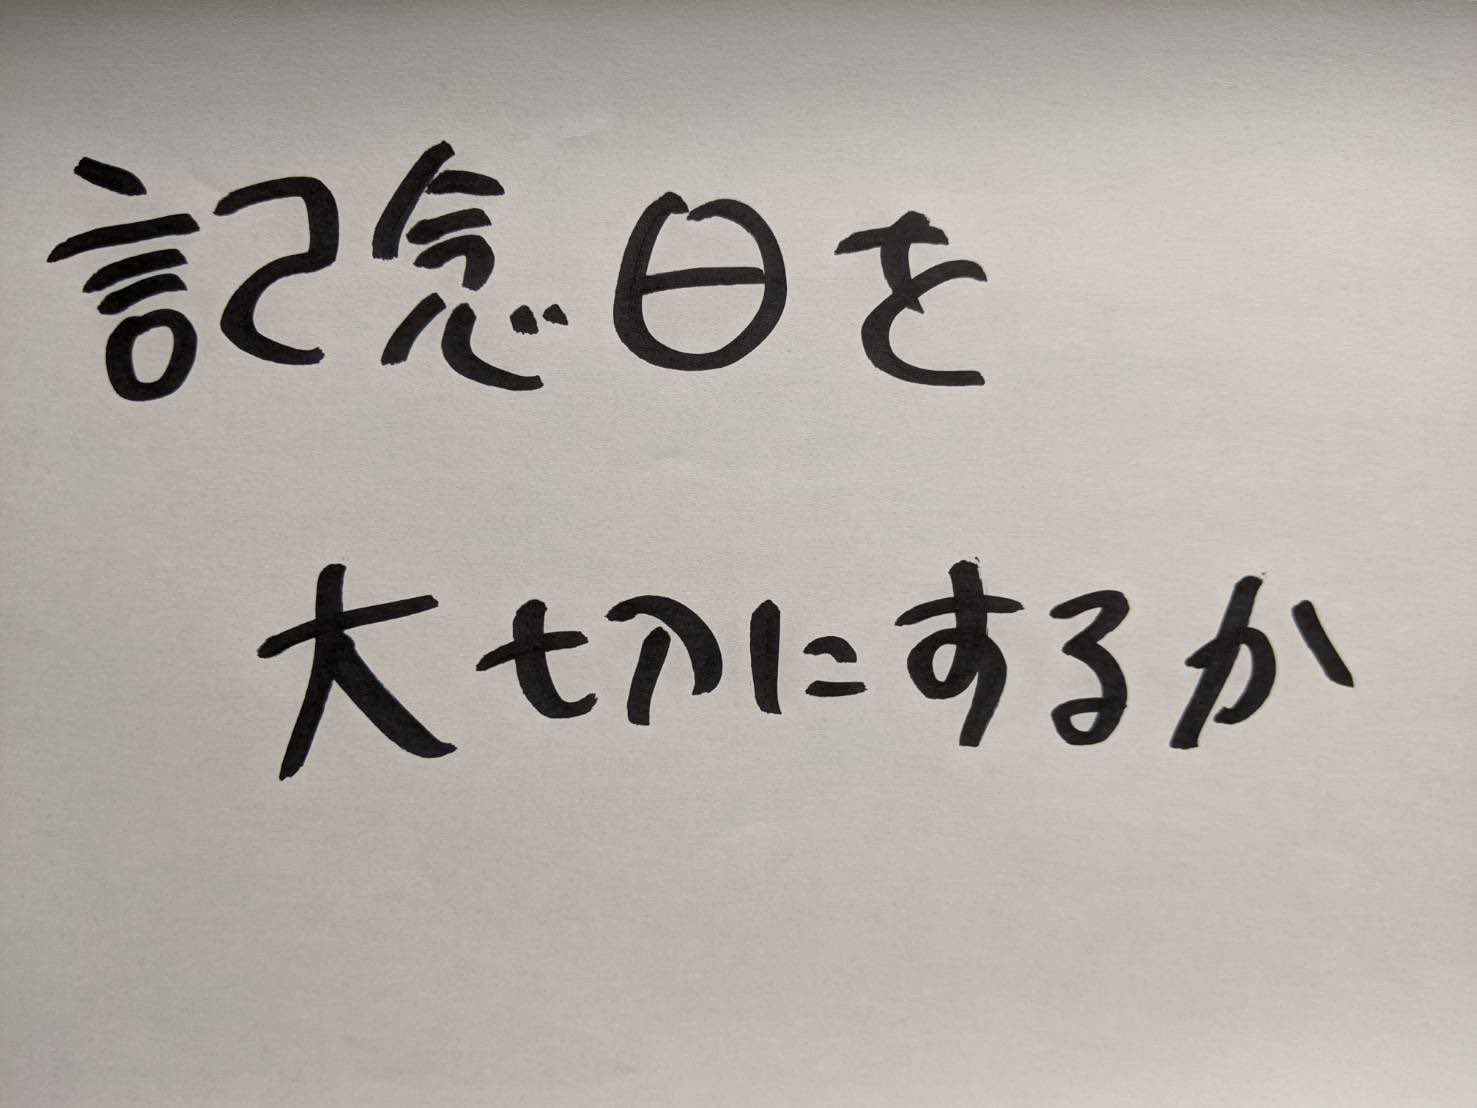 記念日を
大切にするか